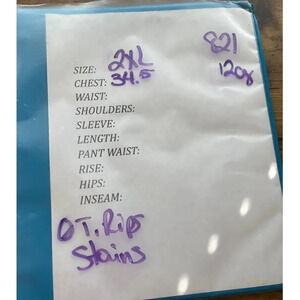 821
120g
SIZE: 2XL
CHEST: 34.5
WAIST:
SHOULDERS:
SLEEVE:
LENGTH:
PANT WAIST:
RISE:
HIPS:
INSEAM:
OT, Rips
Stains